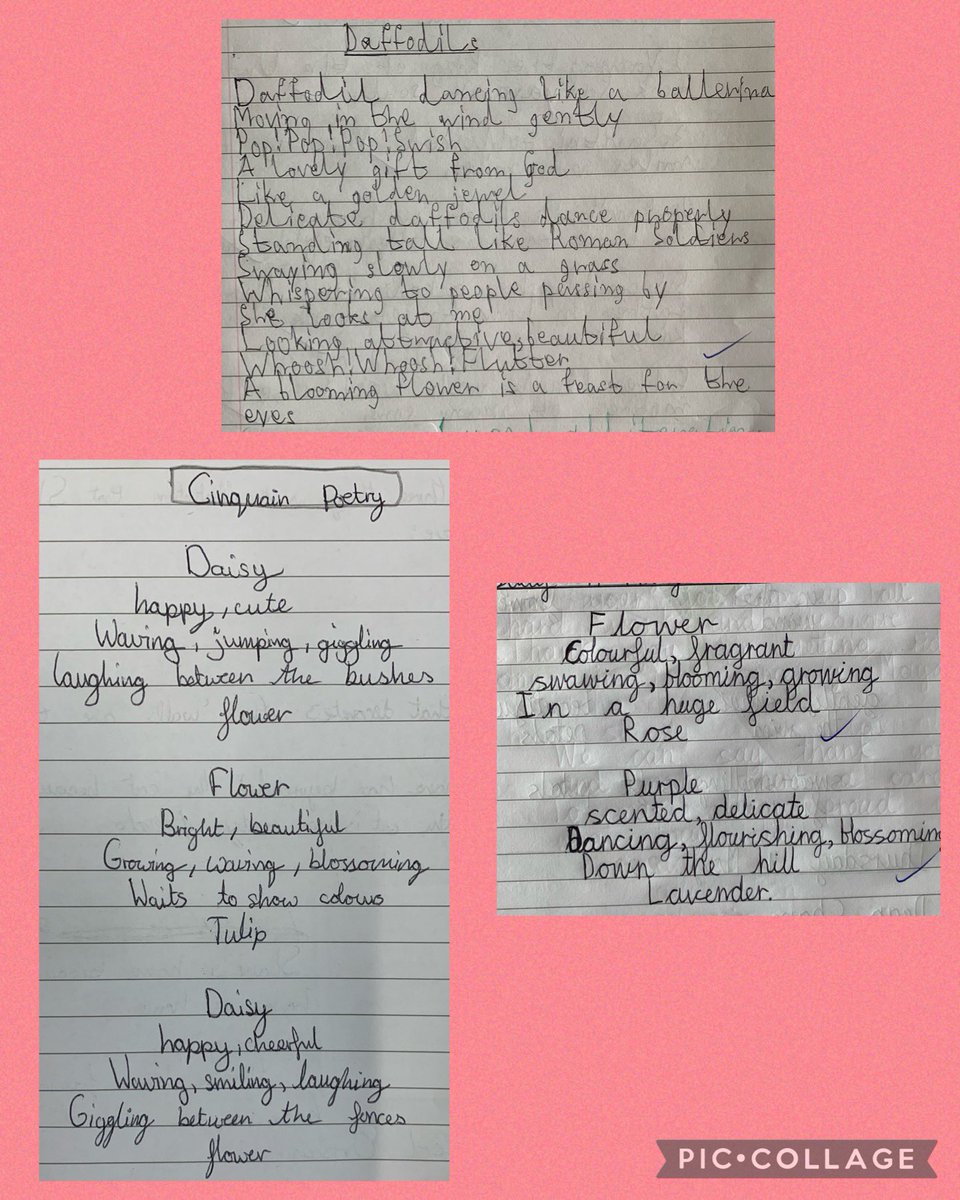 Daffodils
Daffodil dancing like a ballerina
Moving in the wind gently
Pop! Pop! Pop! Swish
A lovely gift from God
Like a golden jewel
Delicate daffodils dance properly
Standing tall like Roman Soldiers
Swaying slowly on a grass
Whispering to people passing by
She looks at me
Looking attractive, beautiful
Whoosh! Whoosh! Flutter
A blooming flower is a feast for the
eyes
Cinquain Poetry
Daisy
happy, cute
Waving, jumping, giggling
laughing between the bushes
flower
Flower
Bright, beautiful
Growing, waving, blossoming
Waits to show colours
Tulip
Daisy
happy, cheerful
Waving, smiling, laughing
Giggling between the fences
flower
Flower
Colourful, fragrant
swawing, blooming, growing
In a huge field
Rose
Purple
scented, delicate
Dancing, flourishing, blossoming
Down the hill
Lavender.
PIC•COLLAGE